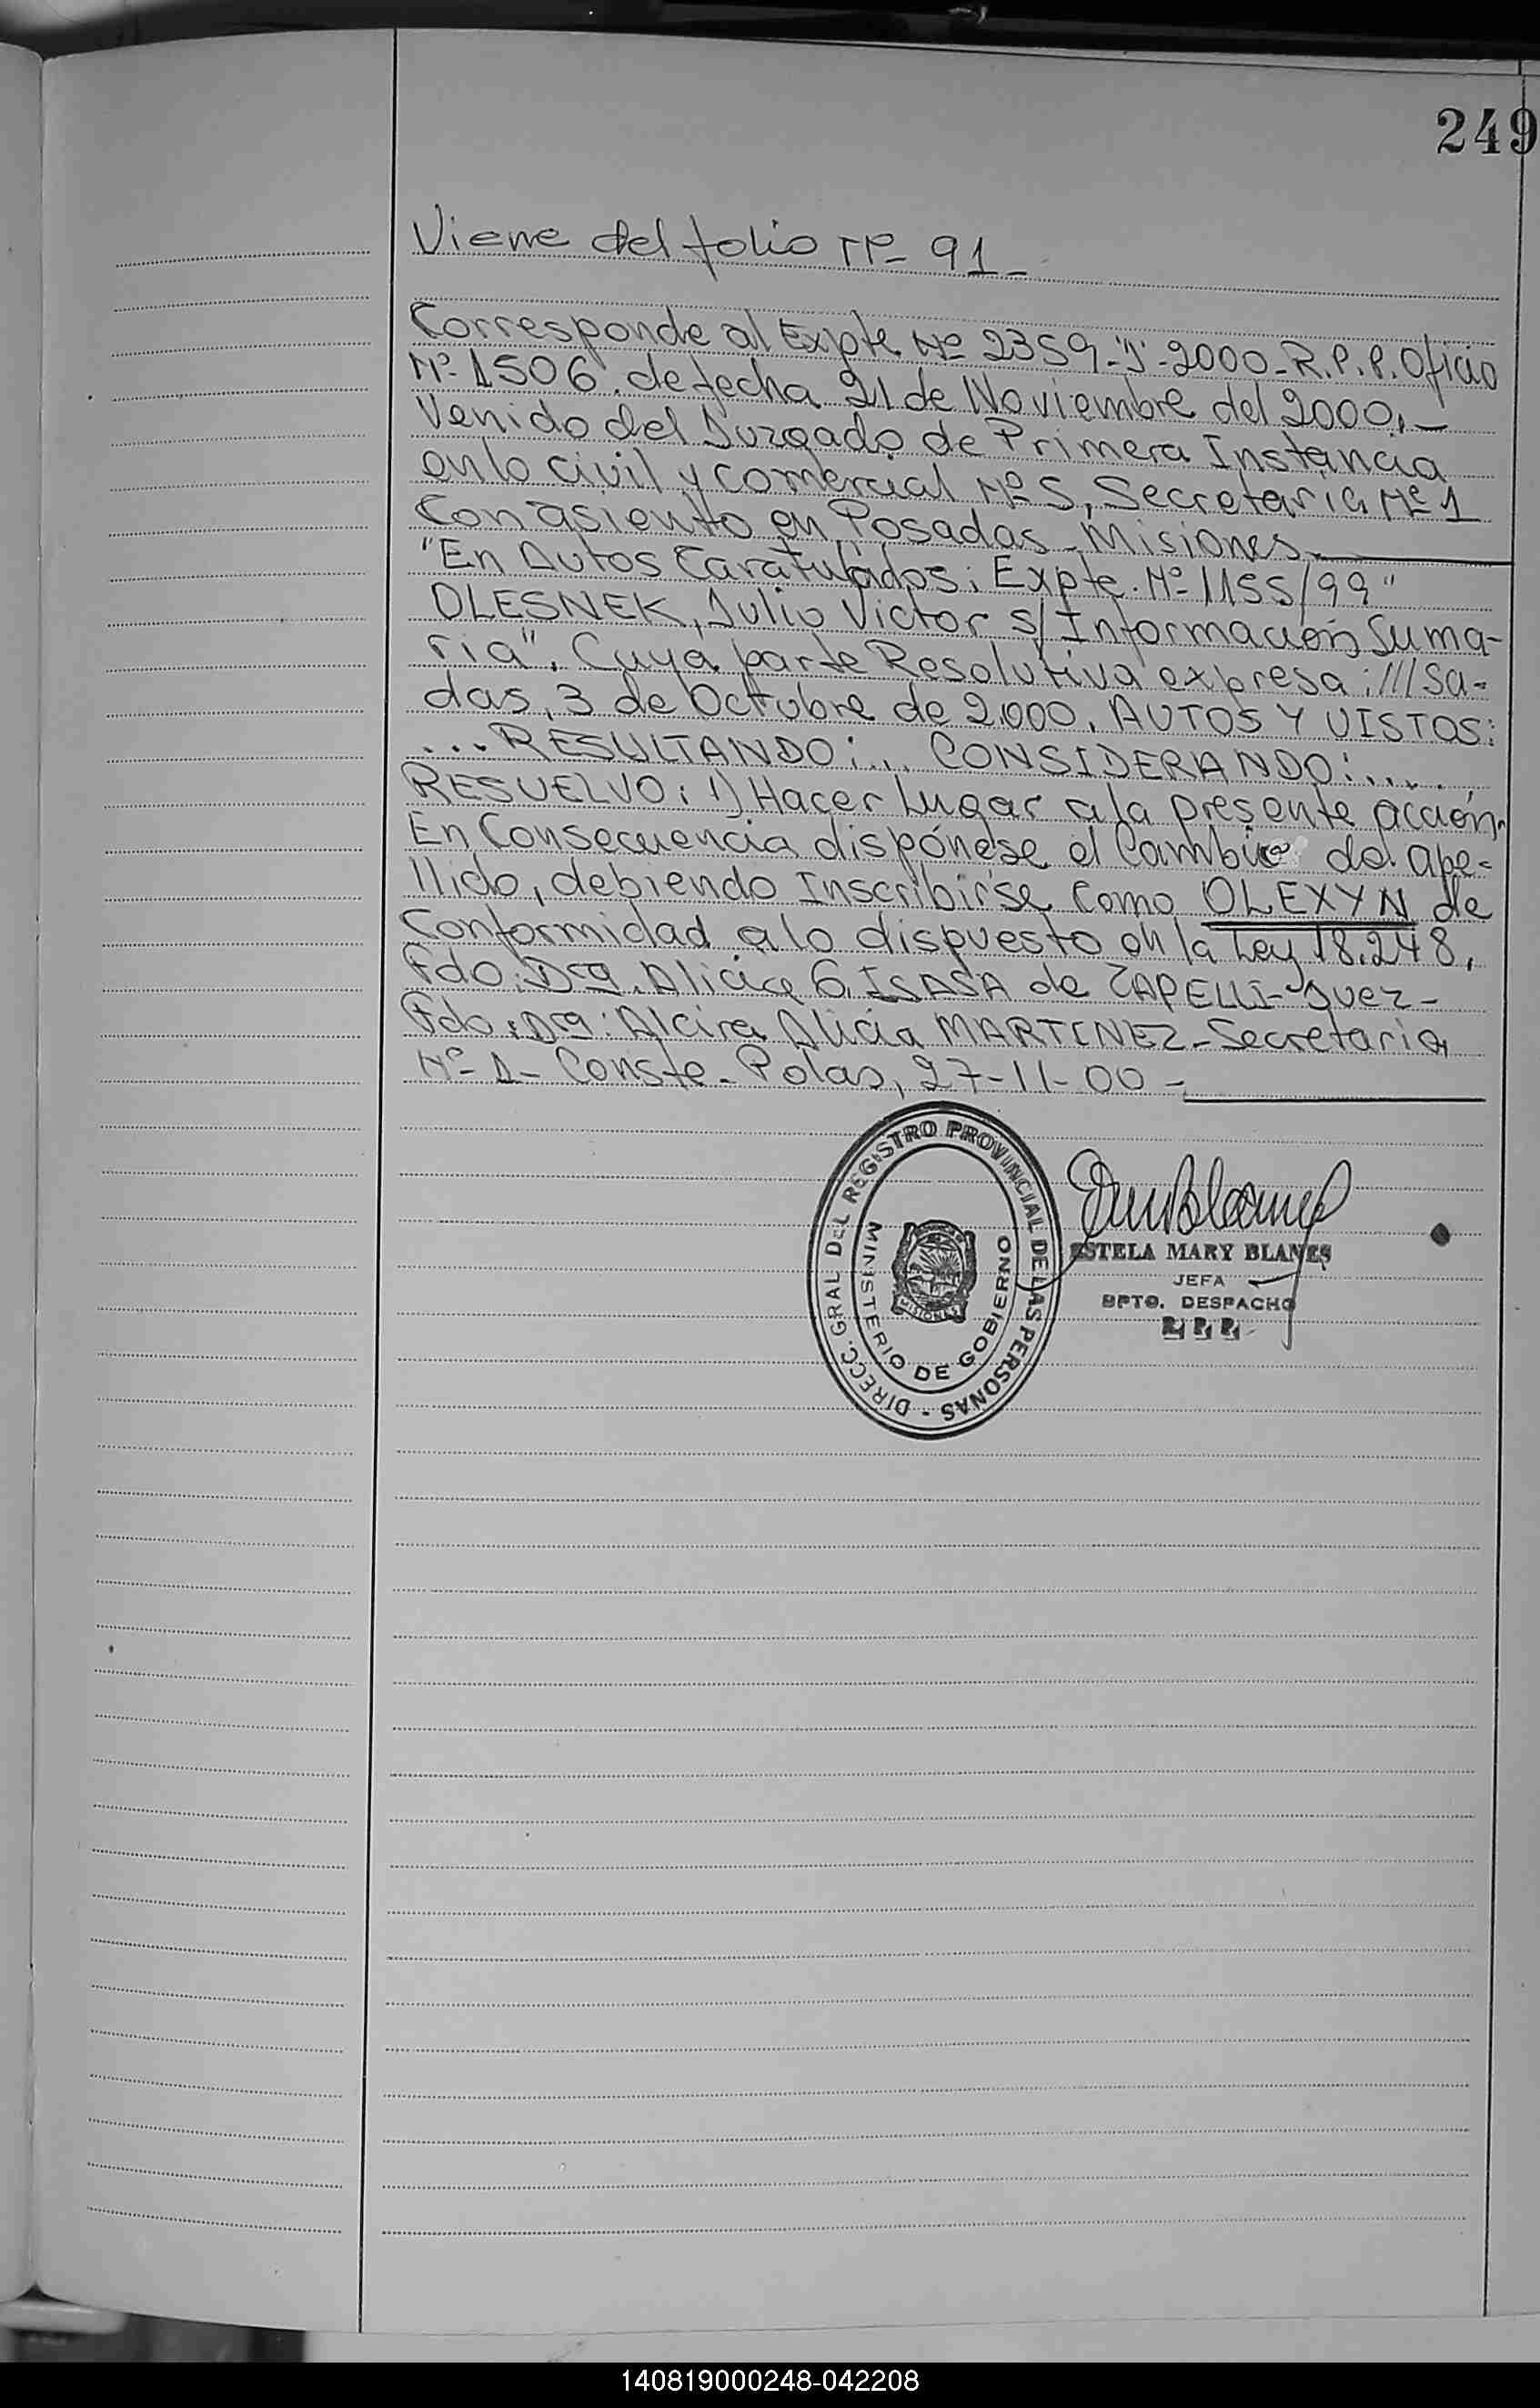 249
Viene del folio Nº 91-
Corresponde al Expte Nº 2359-"J"-2000-R.P.P. Oficio
Nº 1506. de fecha 21 de Noviembre del 2000.-
Venido del Juzgado de Primera Instancia
en lo Civil y Comercial Nº 5, Secretaria Nº 1
Con asiento en Posadas-Misiones-
"En Autos Caratulados: Expte. Nº 1155/99"
OLESNEK, Julio Victor s/ Información Suma-
ria". Cuya parte Resolutiva expresa: ///sa-
das, 3 de Octubre de 2.000. AUTOS Y VISTOS:
...RESULTANDO:... CONSIDERANDO:.....
RESUELVO: 1) Hacer Lugar a la presente acción.
En Consecuencia dispónese el Cambio de ape-
llido, debiendo Inscribirse Como OLEXYN de
Conformidad a lo dispuesto en la Ley 18.248.
Fdo: Dra. Alicia G. ISASA de ZAPELLI-Juez-
Fdo: Dra: Alcira Alicia MARTINEZ-Secretaria
Nº-1- Conste-Pdas, 27-11-00-
DIRECC. GRAL DEL REGISTRO PROVINCIAL DE LAS PERSONAS -
MINISTERIO DE GOBIERNO
MISIONES
ESTELA MARY BLANES
JEFA
DPTO. DESPACHO
140819000248-042208